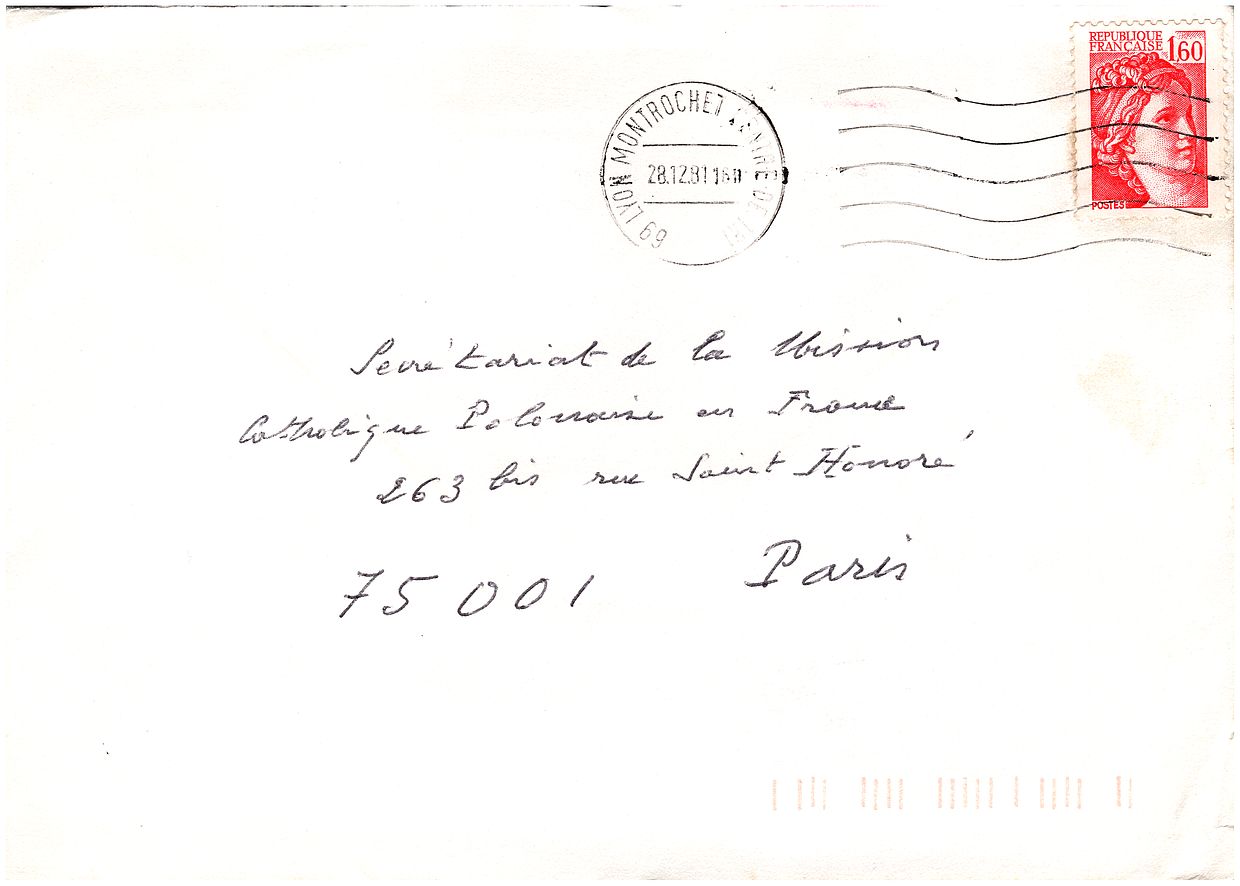 REPUBLIQUE
FRANÇAISE 1,60
POSTES
69 LYON MONTROCHET
28.12.81
Secrétariat de la Mission
Catholique Polonaise en France
263 bis rue Saint Honoré
75 001 Paris